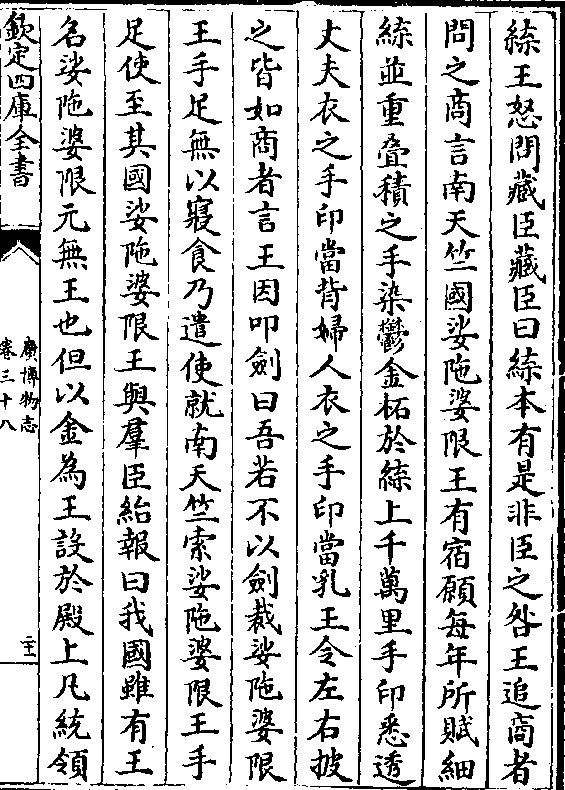 緤王怒問藏臣藏臣曰緤本有是非臣之咎王追商者
問之商言南天竺國娑陁婆限王有宿願每年所賦細
緤並重疊積之手染鬱金柘於緤上千萬里手印悉透
丈夫衣之手印當背婦人衣之手印當乳王令左右披
之皆如商者言王因叩劍曰吾若不以劍裁娑陁婆限
王手足無以寢食乃遣使就南天竺索娑陁婆限王手
足使至其國娑陁婆限王與羣臣紿報曰我國雖有王
名娑陁婆限元無王也但以金為王設於殿上凡統領
欽定四庫全書
廣博物志
卷三十八